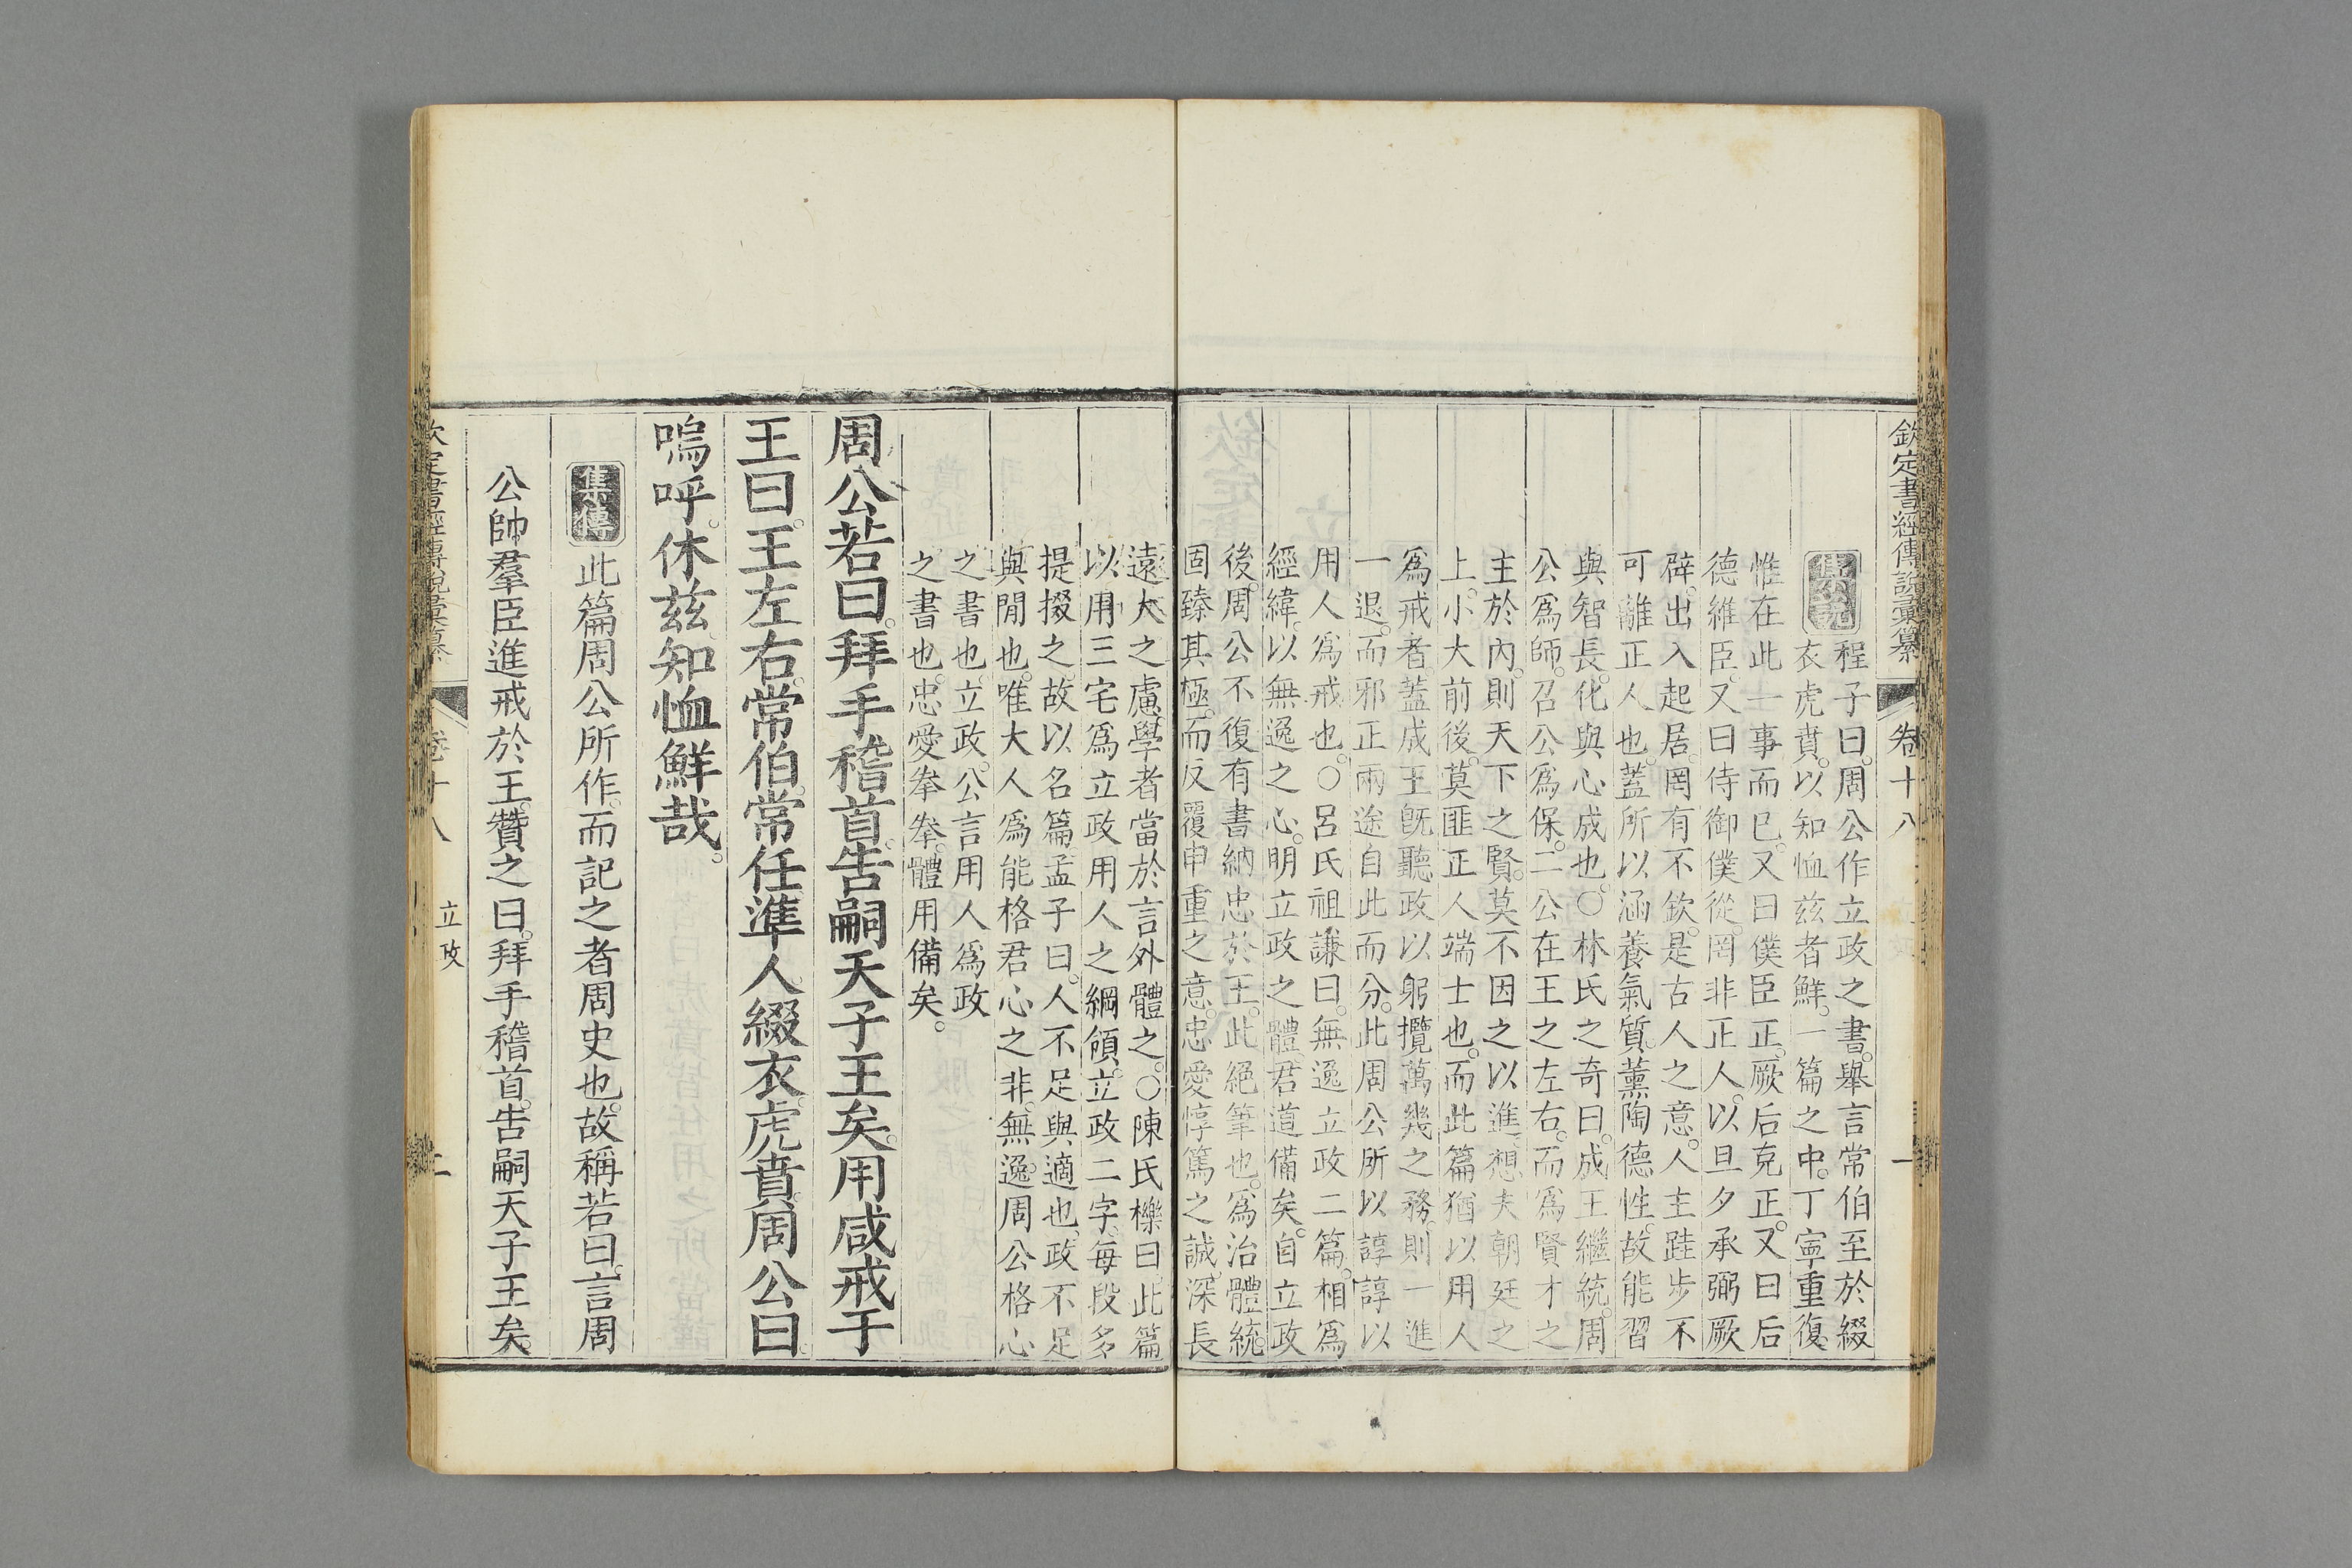 欽定書經傳說彙纂 卷十八 一
集說
程子曰。周公作立政之書。舉言常伯至於綴
衣虎賁。以知恤茲者鮮。一篇之中。丁寧重復。
惟在此一事而已。又曰僕臣正。厥后克正。又曰后
德維臣。又曰侍御僕從。罔非正人。以旦夕承弼厥
辟。出入起居。罔有不欽。是古人之意。人主跬步不
可離正人也。蓋所以涵養氣質。薰陶德性。故能習
與智長。化與心成也。○林氏之奇曰。成王繼統。周
公爲師。召公爲保。二公在王之左右。而爲賢才之
主於內。則天下之賢。莫不因之以進。想夫朝廷之
上。小大前後。莫匪正人端士也。而此篇猶以用人
爲戒者。蓋成王旣聽政以躬攬萬幾之務。則一進
一退。而邪正兩途自此而分。此周公所以諄諄以
用人爲戒也。○呂氏祖謙曰。無逸立政二篇。相爲
經緯。以無逸之心。明立政之體。君道備矣。自立政
後。周公不復有書納忠於王。此絕筆也。爲治體統。
固臻其極。而反覆申重之意。忠愛惇篤之誠。深長
遠大之慮。學者當於言外體之。○陳氏櫟曰。此篇
以用三宅爲立政用人之綱領。立政二字。每段多
提掇之。故以名篇孟子曰。人不足與適也。政不足
與閒也。唯大人爲能格君心之非。無逸。周公格心
之書也。立政。公言用人爲政
之書也。忠愛拳拳。體用備矣。
周公若曰。拜手稽首。告嗣天子王矣。用咸戒于
王曰。王左右。常伯。常任準人。綴衣。虎賁。周公曰。
嗚呼。休茲知恤鮮哉。
集傳
此篇周公所作。而記之者周史也。故稱若曰。言周
公帥羣臣進戒於王。贊之曰。拜手稽首。告嗣天子王矣。
欽定書經傳說彙纂 卷十八 立政 二